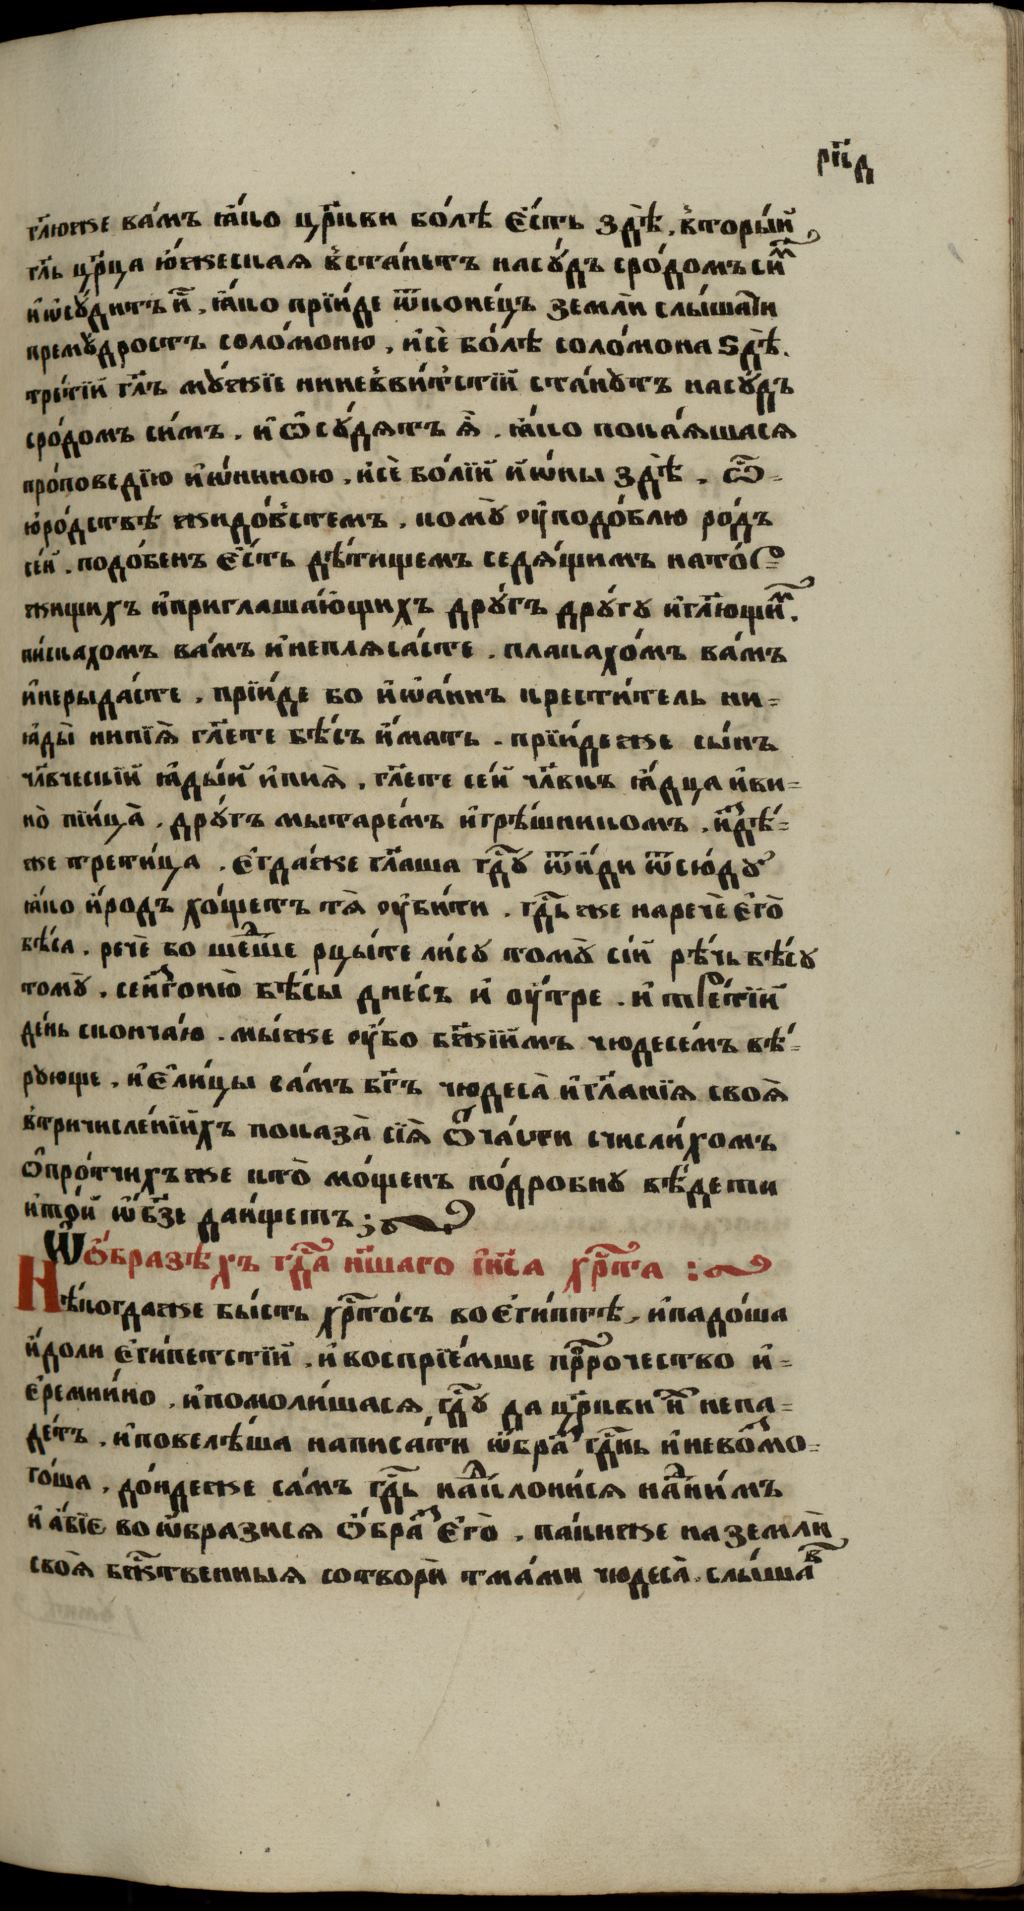 рп҃д
гл҃юже ва́мъ ꙗ́ко цр҃кви бо́лѣ є҆́сть здѣ̀. вторы́й
гл҃ъ цр҃ца ю҆́жеская вста́нетъ насꙋ́дъ сро́домъ си́м
и҆ ѡ҆сꙋ́дитъ и҆̀. ꙗ҆́ко прїи́де ѿконе́цъ земли̑ слы́шати
премꙋ́дрость соломо́ню, и҆сѐ бо́лѣ соло́мона ѕдѣ̀.
тре́тїй гл҃ъ мꙋ́жїе нинеѵви́тстїй ста́нꙋтъ насꙋ́дъ
сро́домъ си́мъ. и҆ ѡ҆сꙋ́дятъ ѧ҆̀. ꙗ҆́ко покая́шася
про́поведїю и҆ѡ́ниною, и҆сѐ бо́лїй и҆ѡ́ны здѣ̀. ѿ-
ю҆ро́дствѣ жидо́встемъ. комꙋ̀ оу҆подо́блю ро́дъ
се́й. подо́бенъ є҆́сть дѣ́тищемъ седя́щимъ нато́р
жищихъ и҆приглаша́ющихъ дрꙋ́гъ дрꙋ́гꙋ и҆гл҃ющи́м.
писка́хомъ ва́мъ и҆непляса́сте. плака́хомъ ва́мъ
и҆нерыда́сте. прїи́де бо и҆ѡа́ннъ крести́тель ни-
ꙗ҆ды́ нипїѧ̀ гл҃ете бѣ́съ и҆́мать. прїи́деже сы́нъ
чл҃вческїй ꙗ҆ды́й и҆пиѧ̀, гл҃ете се́й чл҃вкъ ꙗ҆́дца и҆ви-
но̀ пїи́ца. дрꙋ́гъ мытаре́мъ и҆грѣ́шникомъ. и҆дѣ́-
же трети́ца. є҆гда́же гл҃аша гдⷭ҇ꙋ ѿи́ди ѿсю́дꙋ
ꙗ҆́ко и҆́родъ хо́щетъ тѧ̀ оу҆би́ти. гдⷭ҇ь же наречѐ є҆го̀
бѣ́са. речѐ бо ше́дше рцы́те ли́сꙋ томꙋ̀ сі́й рѣ́чь бѣ́сꙋ
томꙋ̀. се и҆згоню̀ бѣ́сы дне́съ и҆ оу҆́тре. и҆ тре́тїй
де́нь сконча́ю. мы́же оу҆́бо бж҃їимъ чюдесе́мъ вѣ́-
рꙋюще. и҆ є҆ли́цы са́мъ бг҃ъ чюдеса̀ и҆гл҃анїя своѧ̀
втричисле́нїихъ показа̀ сїѧ̀ ѿча́сти счисли́хомъ
ѡ҆про́тчихъже кто̀ мо́щенъ по́дробнꙋ вѣ́дети
и҆то́й ѡ҆ бз҃е да́ищетъ;
Ѡ҆ ѻ҆́бразѣхъ гдⷭ҇а н҃шаго і҆и҃са хрⷭ҇та :
Нѣ́когдаже бы́сть хрⷭ҇то́съ во є҆ги́птѣ, и҆падо́ша
и҆́доли є҆ги́петстїй. и҆ воспрїе́мше прⷪ҇ро́чество и҆-
є҆ремии́но. и҆помоли́шася гдⷭ҇ꙋ да цр҃кви и҆́м непа-
де́тъ. и҆повелѣ́ша написа́ти ѡ҆́браз гдⷭ҇нь и҆невозмо-
го́ша. до́ндеже са́мъ гдⷭ҇ь надклони́ся надни́мъ
и҆ а҆́бїє воѡбрази́ся ѻ҆́браз є҆го̀. па́киже на земли̑
своѧ̀ бж҃ⷭтвенныя сотвори̑ тма́ми чюдеса̀. слы́шав